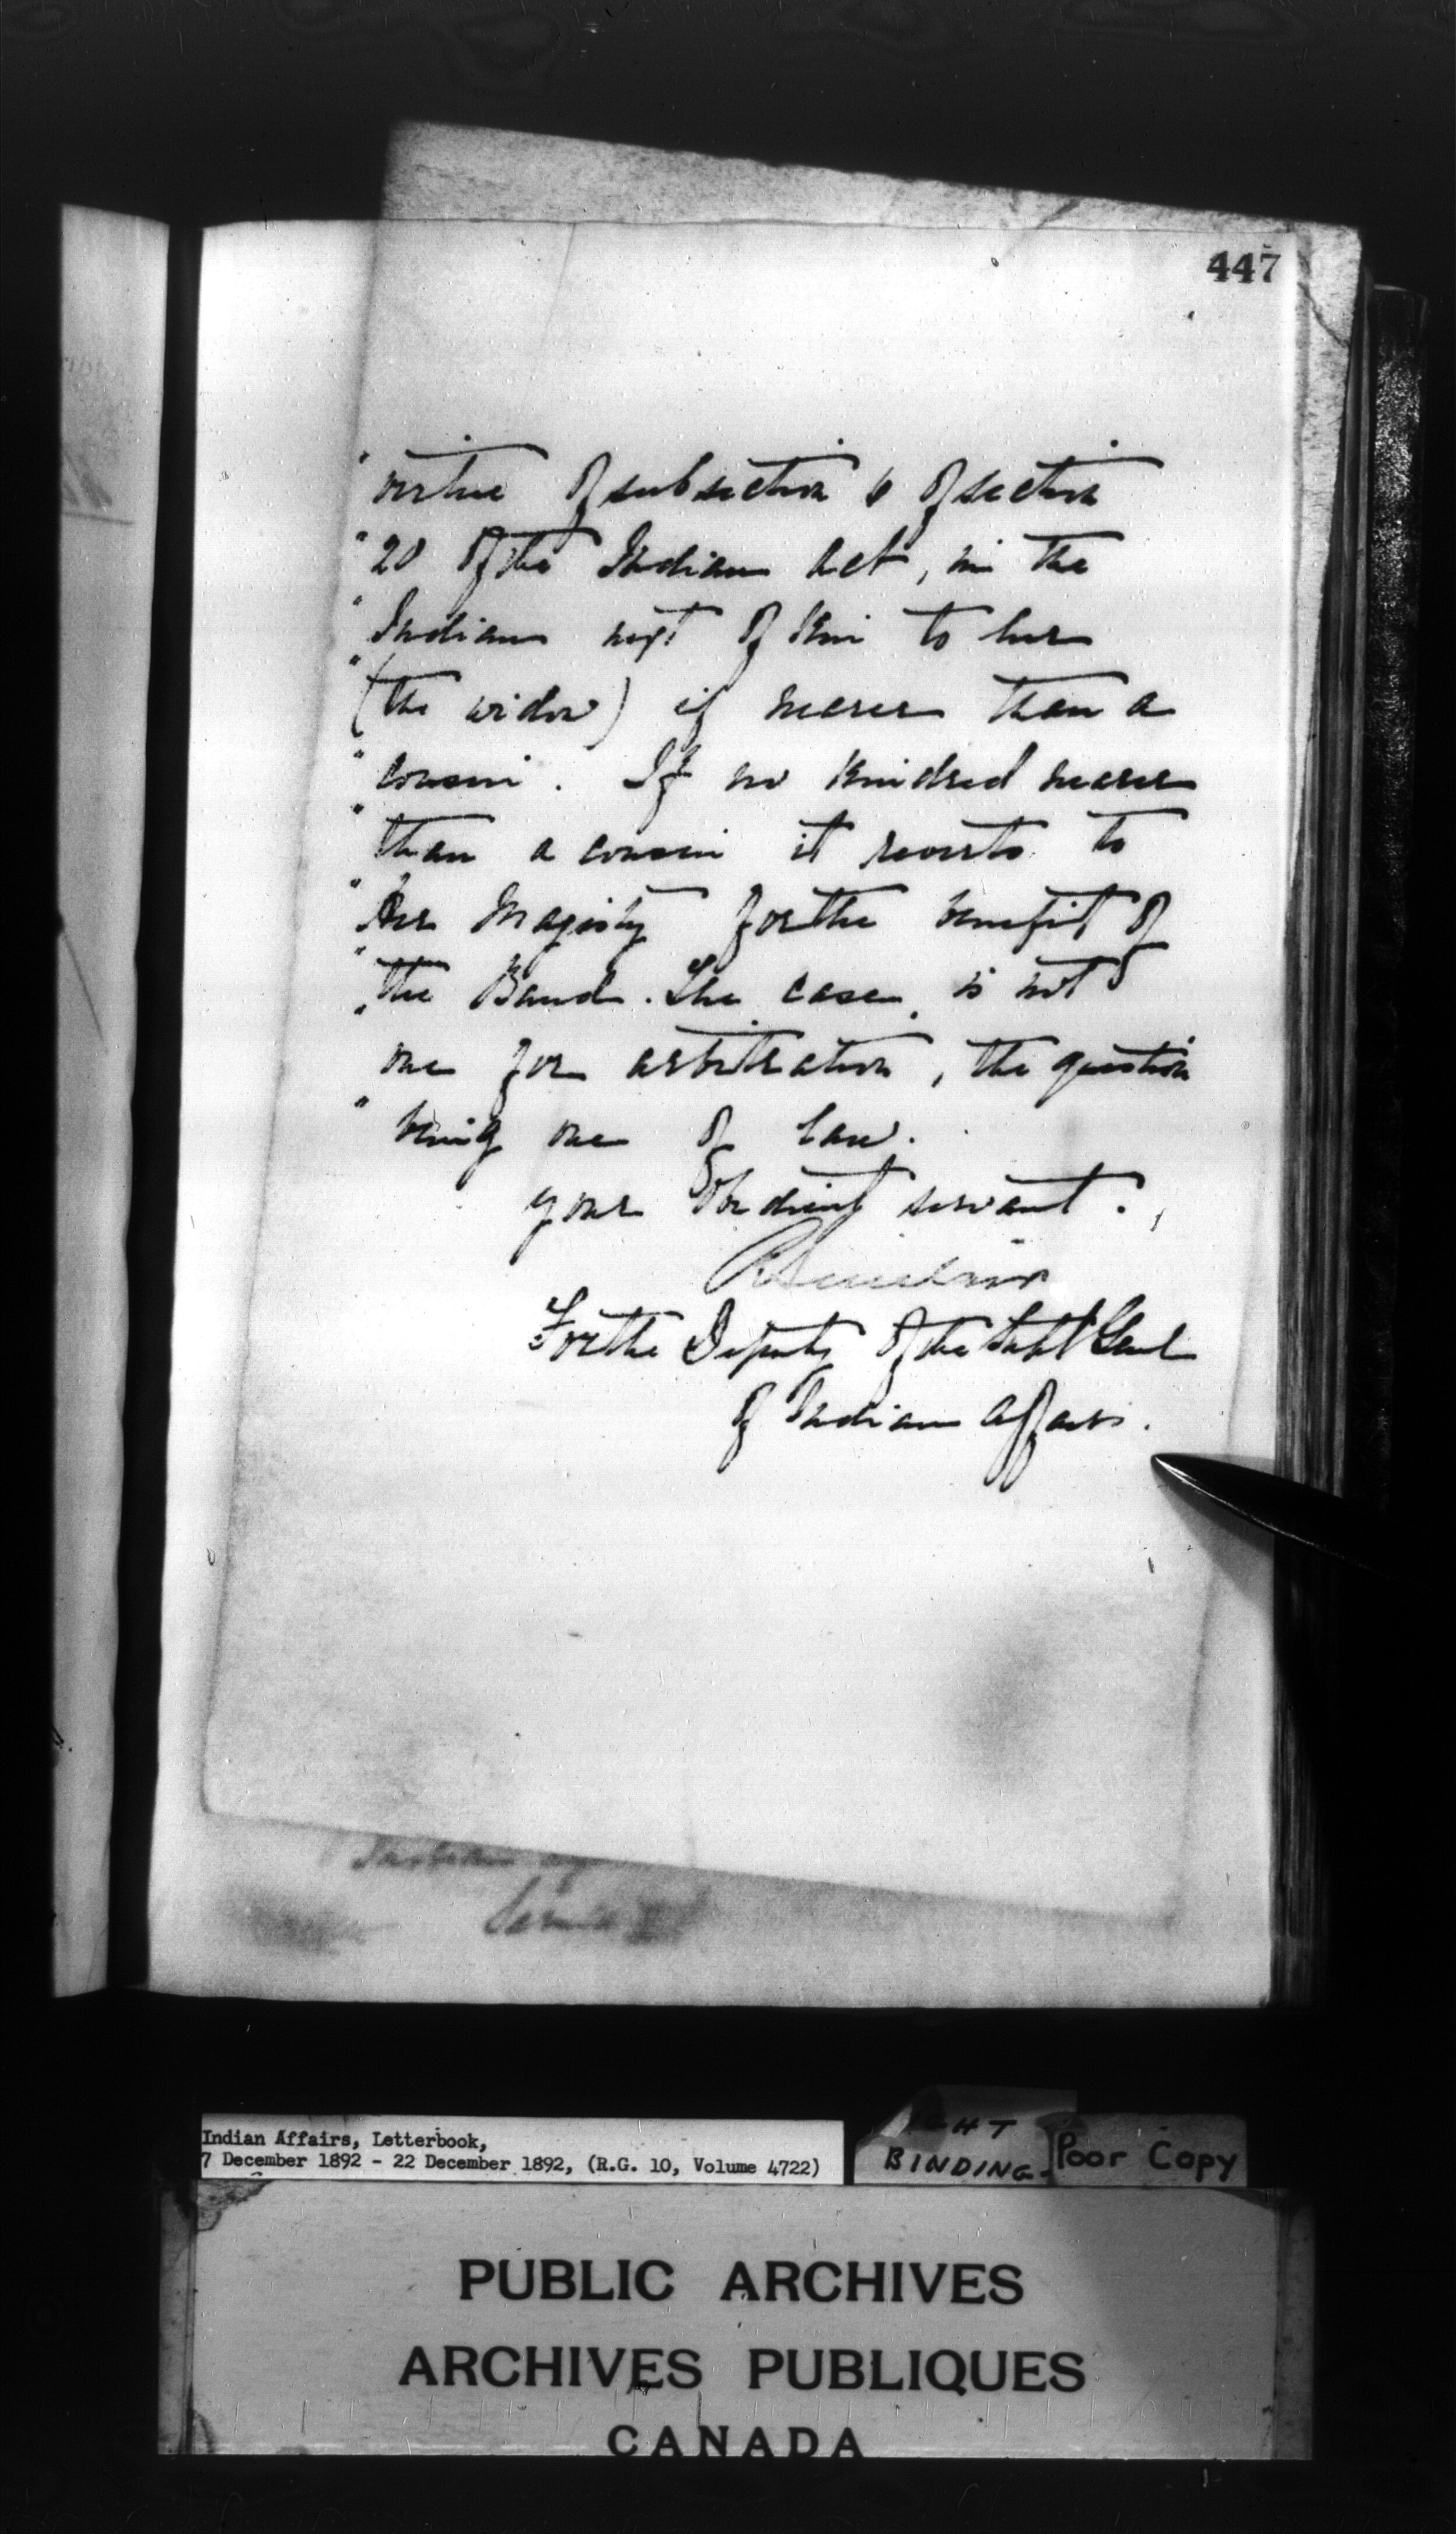 447
" virtue of subsection 6 of section
" 20 of the Indian Act, in the
" Indian next of Kin to her
" (the widow) if nearer than a
" cousin. If no Kindred nearer
" than a cousin it reverts to
" Her Majesty for the benefit of
" the Band. The case is not
" one for arbitration, the question
" being one of law.
your Obedient servant.,
R Sinclair
For the Deputy of the Supt Genl
of Indian Affairs.
Indian Ag
Indian Affairs, Letterbook,
7 December 1892 - 22 December 1892, (R.G. 10, Volume 4722)
BINDING
Poor Copy
PUBLIC ARCHIVES
ARCHIVES PUBLIQUES
CANADA